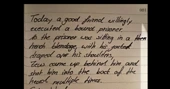 Today a good friend willingly
executed a bound prisoner.
As the prisoner was sitting in a
trench bandage, with his
draped over his shoulders,
came up behind him and
shot him into the back of the
multiple times.